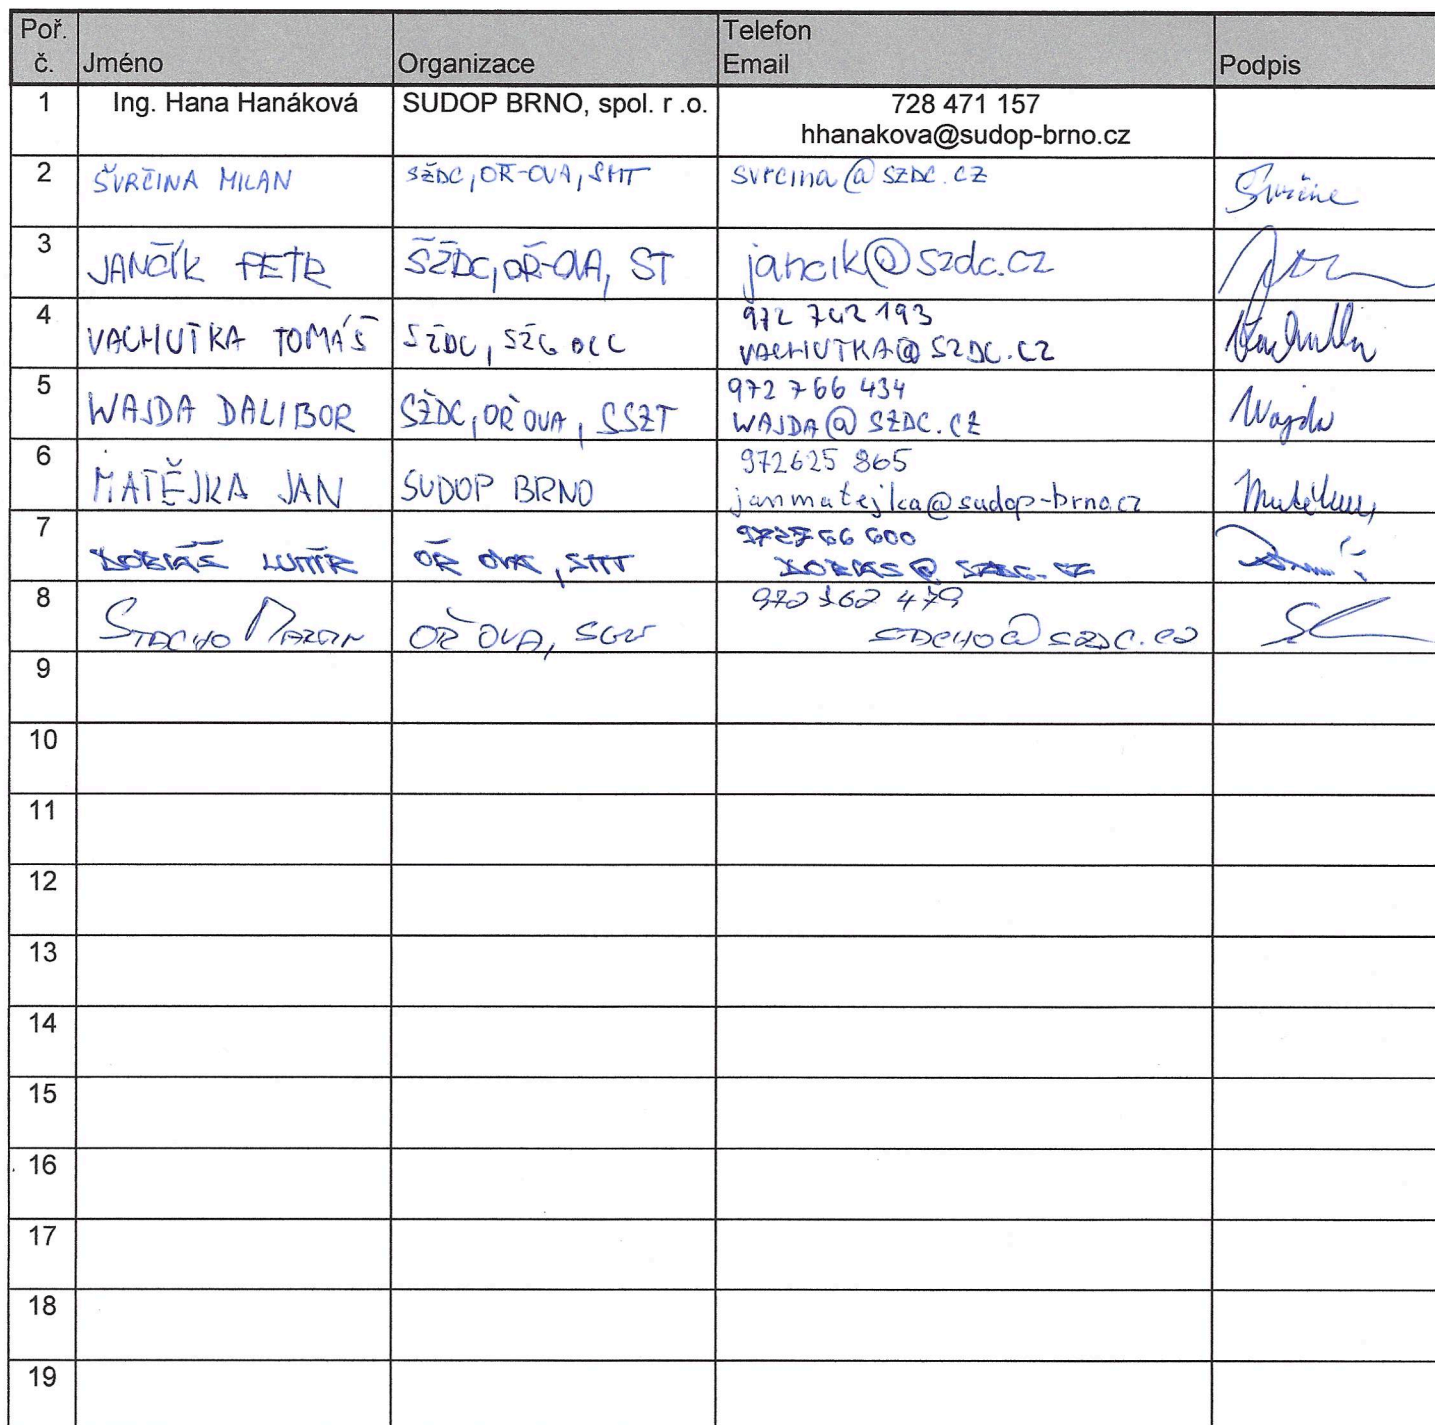 Poř. č. Jméno Organizace Telefon Email Podpis
1 Ing. Hana Hanáková SUDOP BRNO, spol. r .o. 728 471 157
hhanakova@sudop-brno.cz
2 ŠVRČINA MILAN SŽDC, OŘ-OVA, SMT svrcina@szdc.cz
3 JANČÍK PETR SŽDC, OŘ-OVA, ST jancik@szdc.cz
4 VACHUTKA TOMÁŠ SŽDC, SŽG OLC 972 742 193
VACHUTKA@SZDC.CZ
5 WAJDA DALIBOR SŽDC, OŘ OVA, SSZT 972 766 434
WAJDA@SZDC.CZ
6 MATĚJKA JAN SUDOP BRNO 972625 865
janmatejka@sudop-brno.cz
7 LUMÍR OŘ OVA, SMT 972766 600
8 STACHO MARTIN OŘ OVA,
STACHO@SZDC.CZ
9
10
11
12
13
14
15
16
17
18
19